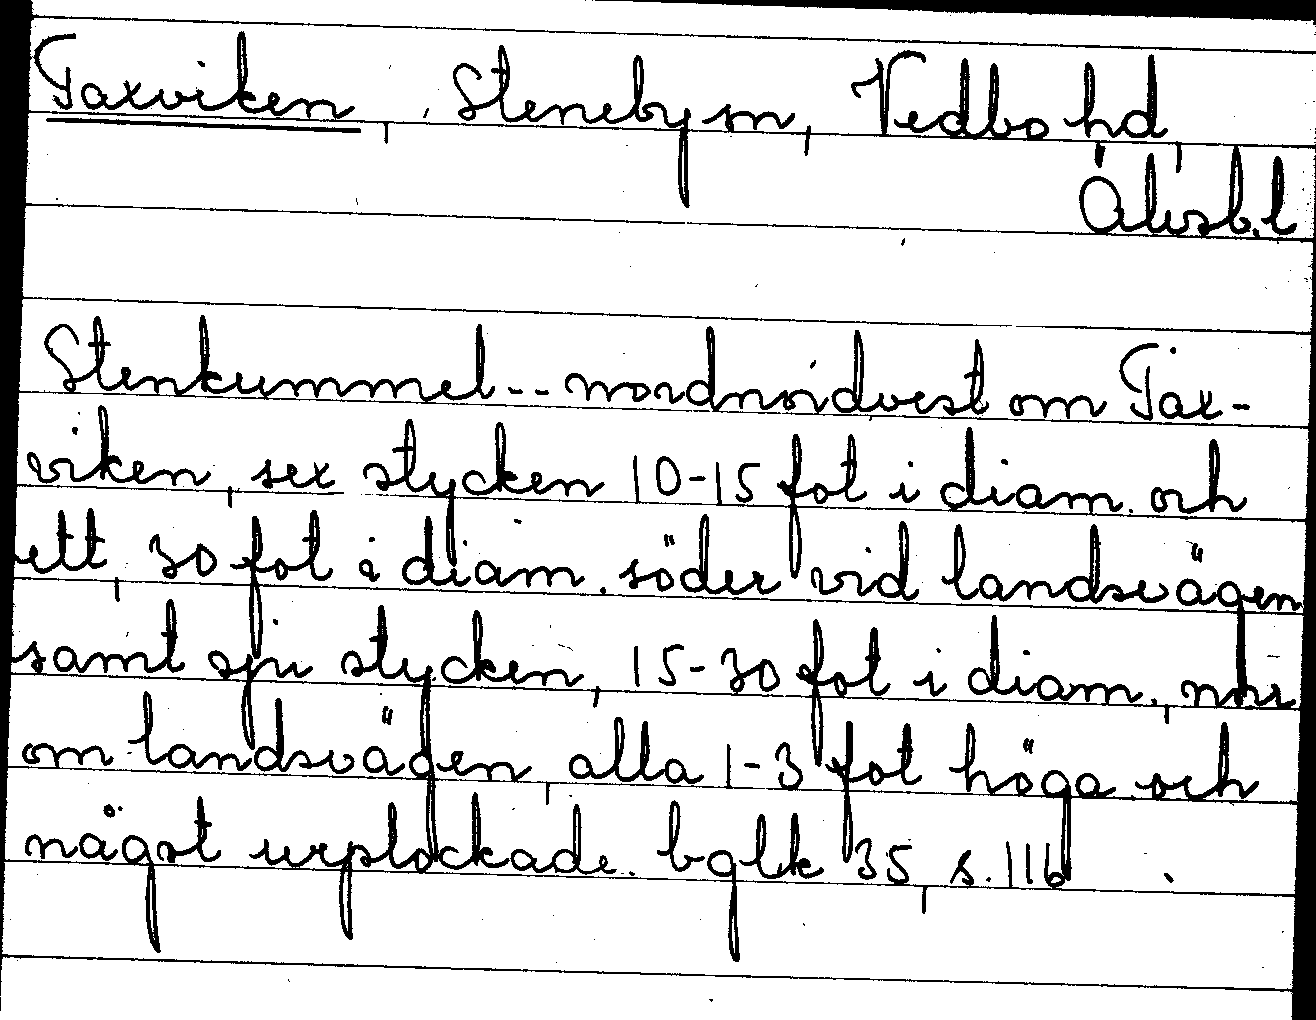 Taxviken, Steneby sn, Vedbo hd,
Älvsb. l
Stenkummel -- nordnordvest om Tax-
viken, sex stycken 10-15 fot i diam. och
ett, 30 fot i diam. söder vid landsvägen
samt sju stycken, 15-30 fot i diam., norr
om landsvägen, alla 1-3 fot höga och
något urplockade. bglk 35, s. 116